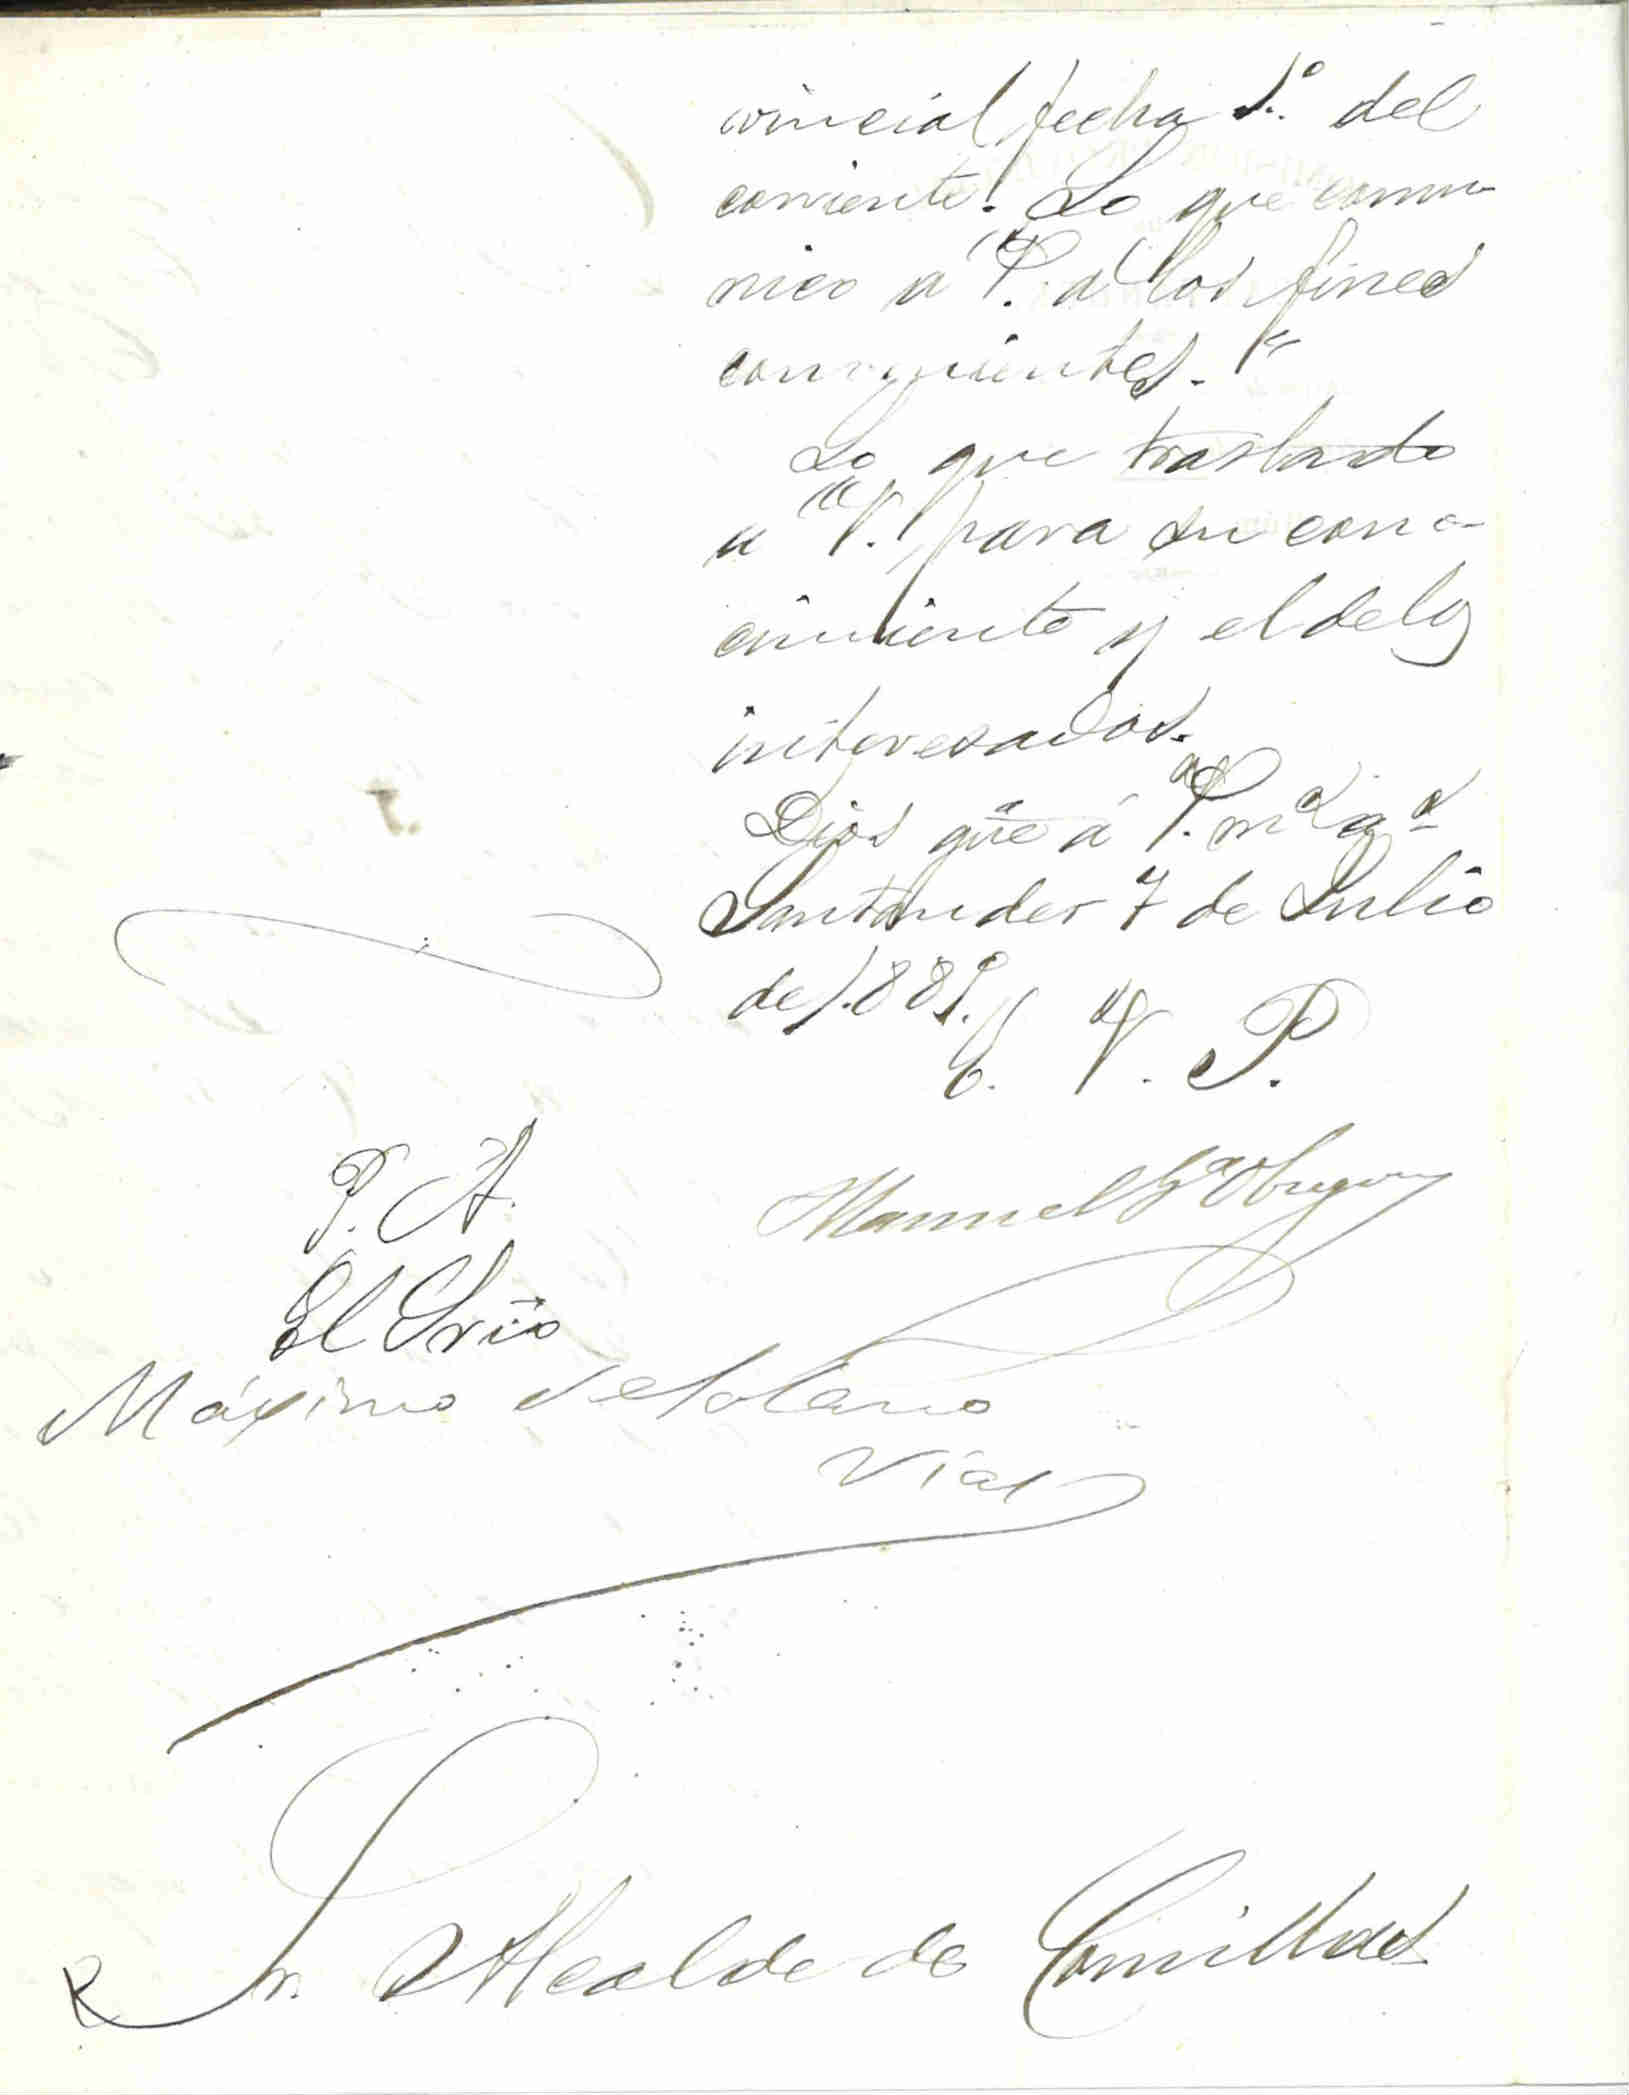 vincial fecha 1.º del
corriente. Lo que comu-
nico a V. a los fines
consiguientes."
Lo que traslado
a V. para su cono-
cimiento y el de los
interesados.
Dios gũe á V. m.s a.s
Santander 7 de Julio
de 1.889.
E. V. P.
Manuel G.a Obregon
P. A.
El Srio
Máximo de Solano
Vial
Sr. Alcalde de Comillas